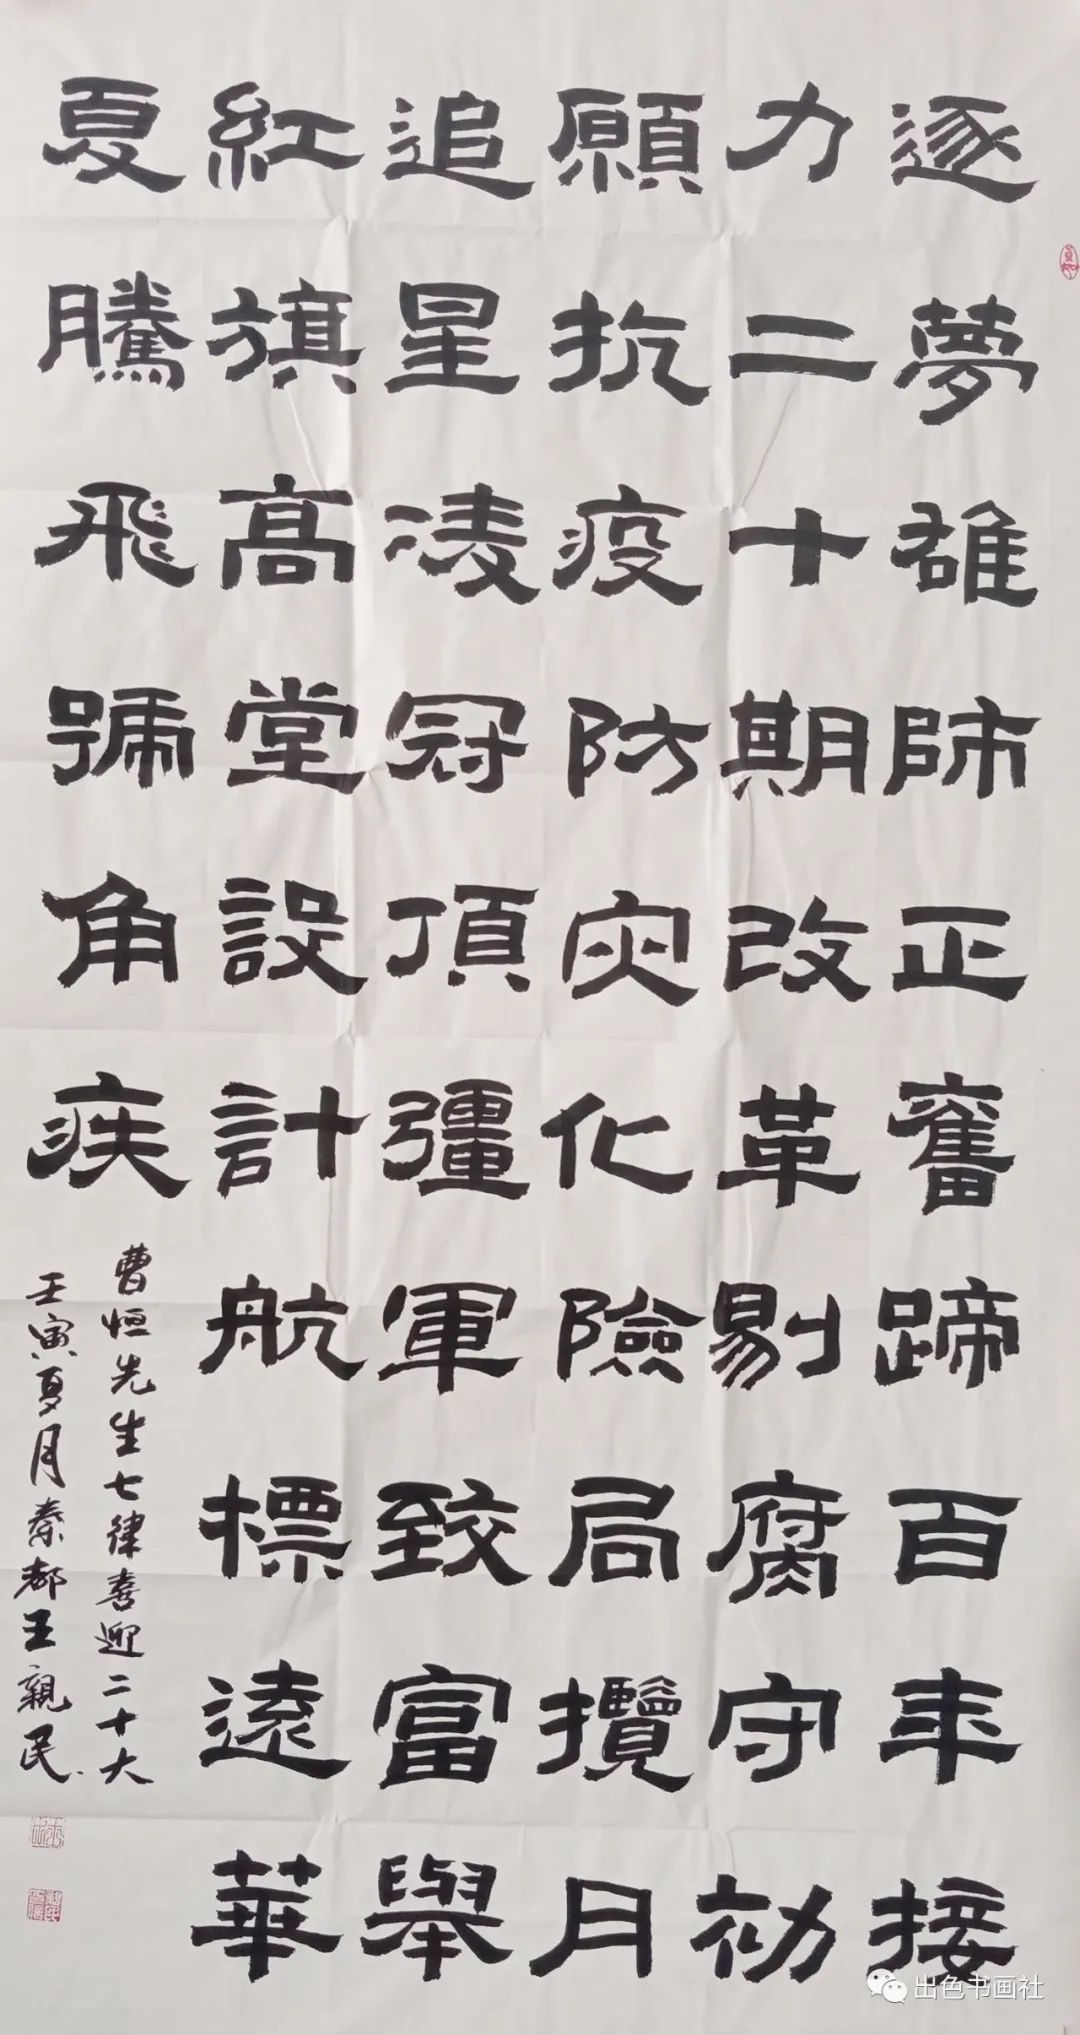 逐夢雄師正奮蹄百年接
力二十期改革剔腐守初
願抗疫防灾化險局攬月
追星凌冠頂彊軍致富舉
紅旗高堂設計航標遠華
夏騰飛號角疾
曹恒先生七律喜迎二十大
壬寅夏月秦都王親民
出色书画社